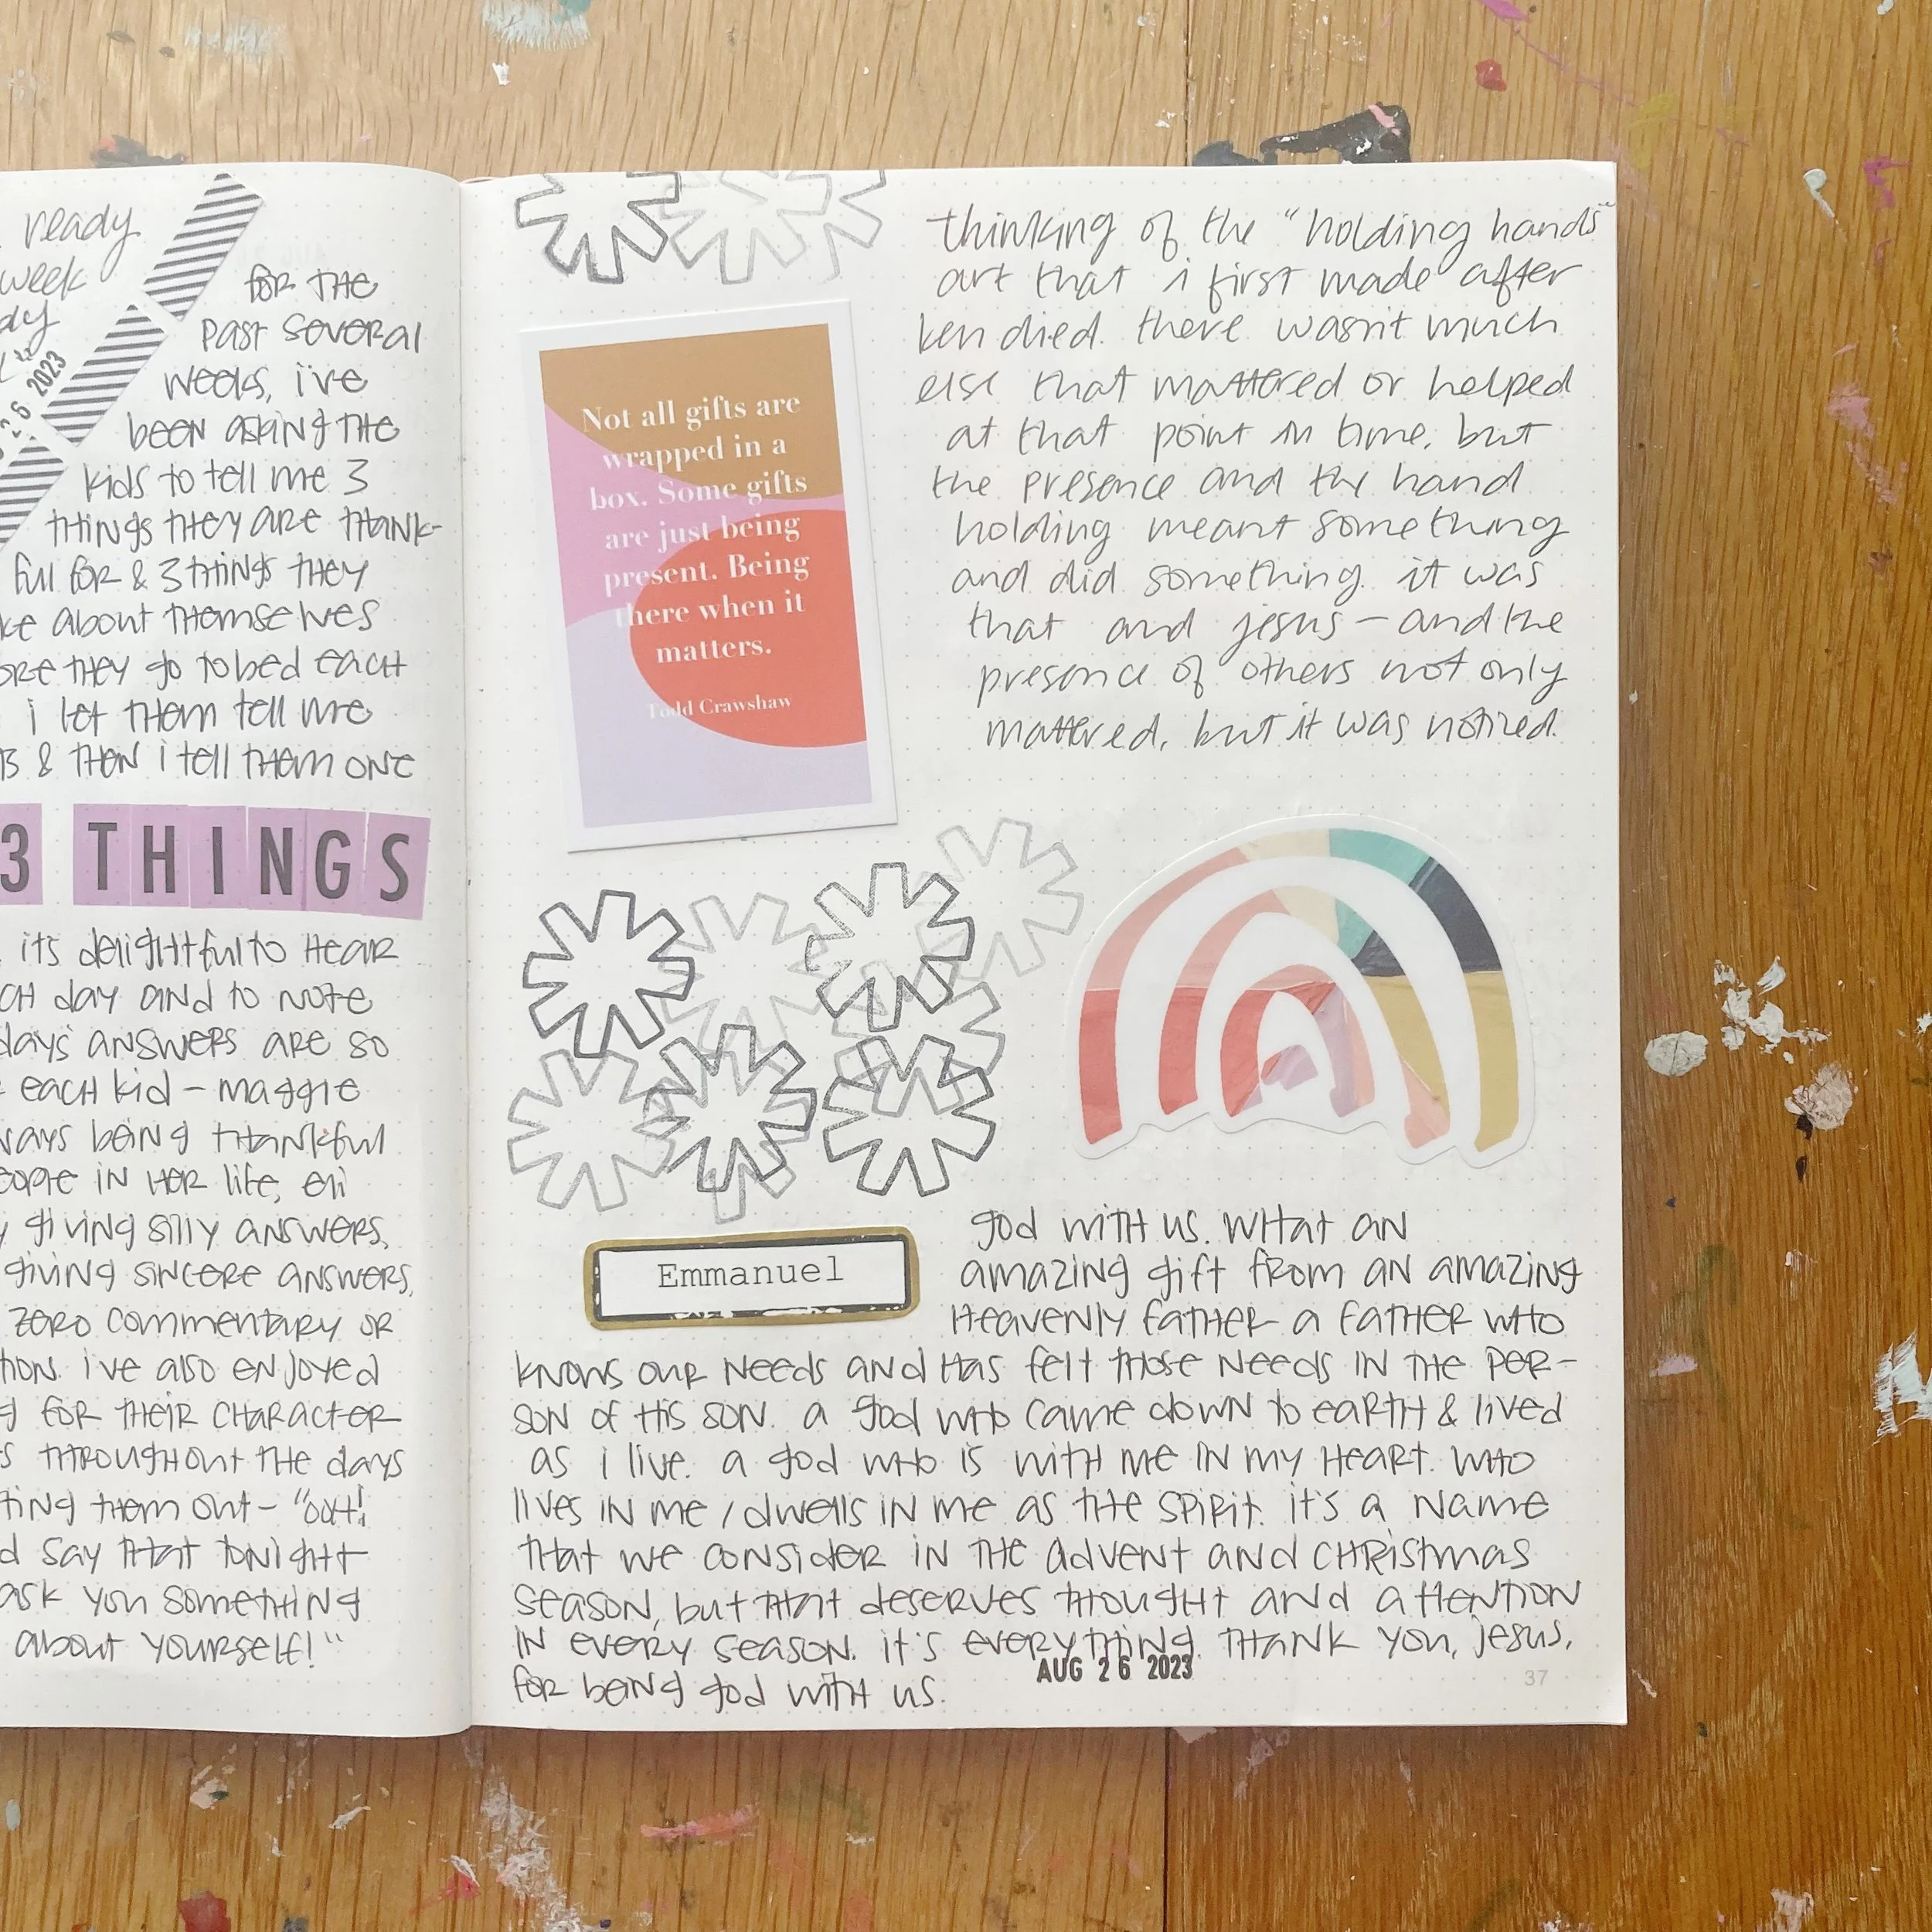 ready
week
2023
for the
past several
weeks, i've
been asking the
kids to tell me 3
things they are thank-
full for & 3 things they
about themselves
they go to bed each
i let them tell me
& then i tell them one
3 THINGS
its delightful to hear
day and to note
days' answers are so
each kid - maggie
being thankful
in her life, eli
giving silly answers,
giving sincere answers,
zero commentary or
i've also enjoyed
for their character
throughout the days
them out - "ooh!
say that tonight
ask you something
about yourself!"
Not all gifts are
wrapped in a
box. Some gifts
are just being
present. Being
there when it
matters.
Todd Crawshaw
thinking of the "holding hands"
art that i first made after
ken died. there wasn't much
else that mattered or helped
at that point in time, but
the presence and the hand
holding meant something
and did something. it was
that and jesus - and the
presence of others not only
mattered, but it was noticed.
Emmanuel
god with us. what an
amazing gift from an amazing
heavenly father a father who
knows our needs and has felt those needs in the per-
son of his son. a god who came down to earth & lived
as i live. a god who is with me in my heart. who
lives in me / dwells in me as the spirit. it's a name
that we consider in the advent and christmas
season, but that deserves thought and attention
in every season. it's everything. thank you, jesus,
for being god with us.
AUG 26 2023
37